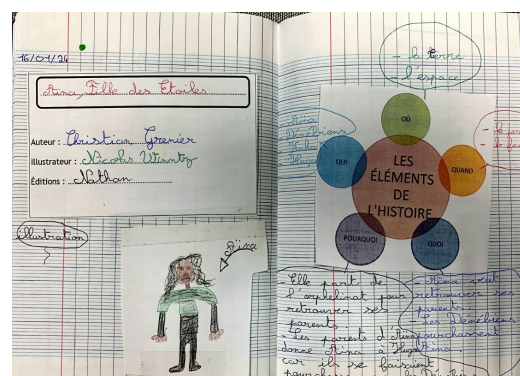 16/01/24
Aïna, Fille des Etoiles
Auteur : Christian Grenier
Illustrateur : Nicolas Wintz
Éditions : Nathan
Illustration
Aïna
- la terre
- l'espace
Aïna
Dénébriens
OÙ
QUI
QUAND
LES
ÉLÉMENTS
DE
L'HISTOIRE
POURQUOI
QUOI
- Elle part de
l'orphelinat pour
retrouver ses
parents
- Les parents d'Aïna
donne Aïna à Hugo
car il se faisaient
- Aïna veut
retrouver ses
parents
- Les Dénébriens
pourchassent
Aïna.